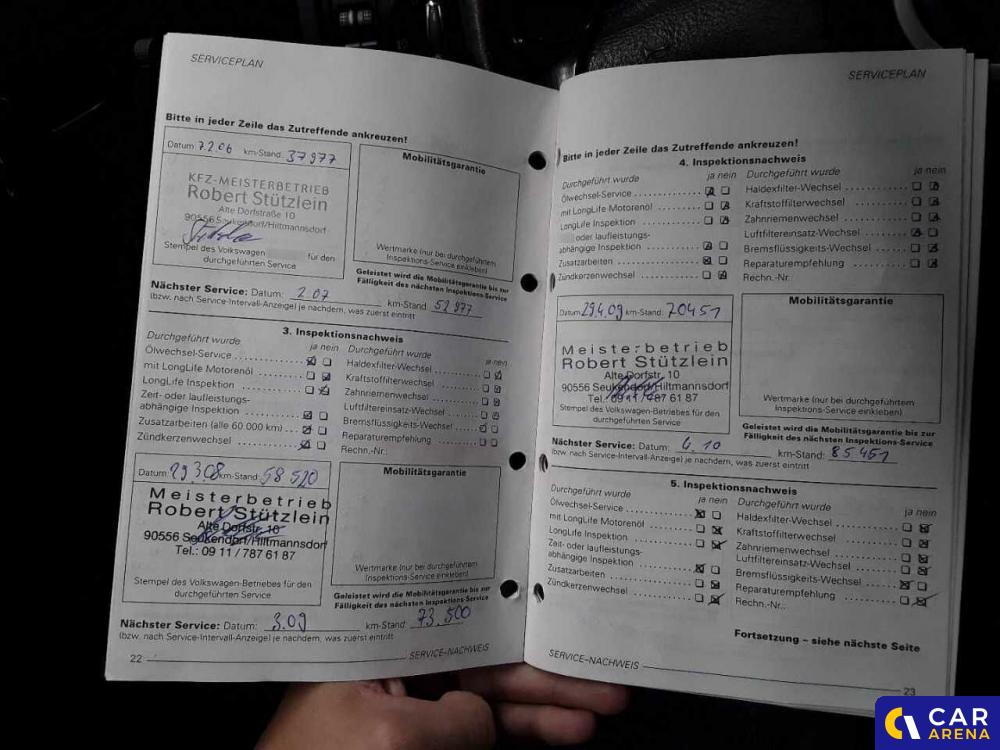 SERVICEPLAN
Bitte in jeder Zeile das Zutreffende ankreuzen!
Datum: 7.2.06 km-Stand: 37977
KFZ-MEISTERBETRIEB
Robert Stützlein
Alte Dorfstraße 10
90556 Seukendorf/Hiltmannsdorf
Stempel des Volkswagen für den
durchgeführten Service
Mobilitätsgarantie
Wertmarke (nur bei durchgeführtem
Inspektions-Service einkleben)
Geleistet wird die Mobilitätsgarantie bis zur
Fälligkeit des nächsten Inspektions-Service
Nächster Service: Datum: 2.07 km-Stand: 52977
(bzw. nach Service-Intervall-Anzeige) je nachdem, was zuerst eintritt
3. Inspektionsnachweis
Durchgeführt wurde ja nein
Ölwechsel-Service
mit LongLife Motorenöl
LongLife Inspektion
Zeit- oder laufleistungs-
abhängige Inspektion
Zusatzarbeiten (alle 60 000 km)
Zündkerzenwechsel
Durchgeführt wurde ja nein
Haldexfilter-Wechsel
Kraftstoffilterwechsel
Zahnriemenwechsel
Luftfiltereinsatz-Wechsel
Bremsflüssigkeits-Wechsel
Reparaturempfehlung
Rechn.-Nr.:
Datum: 29.3.08 km-Stand: 58 520
Meisterbetrieb
Robert Stützlein
Alte Dorfstr. 10
90556 Seukendorf/Hiltmannsdorf
Tel.: 09 11 / 787 61 87
Stempel des Volkswagen-Betriebes für den
durchgeführten Service
Mobilitätsgarantie
Wertmarke (nur bei durchgeführtem
Inspektions-Service einkleben)
Geleistet wird die Mobilitätsgarantie bis zur
Fälligkeit des nächsten Inspektions-Service
Nächster Service: Datum: 3.09 km-Stand: 73.500
(bzw. nach Service-Intervall-Anzeige) je nachdem, was zuerst eintritt
22 SERVICE–NACHWEIS
SERVICEPLAN
Bitte in jeder Zeile das Zutreffende ankreuzen!
4. Inspektionsnachweis
Durchgeführt wurde ja nein
Ölwechsel-Service
mit LongLife Motorenöl
LongLife Inspektion
oder laufleistungs-
abhängige Inspektion
Zusatzarbeiten
Zündkerzenwechsel
Durchgeführt wurde ja nein
Haldexfilter-Wechsel
Kraftstoffilterwechsel
Zahnriemenwechsel
Luftfiltereinsatz-Wechsel
Bremsflüssigkeits-Wechsel
Reparaturempfehlung
Rechn.-Nr.
Datum: 29.4.09 km-Stand: 70451
Meisterbetrieb
Robert Stützlein
Alte Dorfstr. 10
90556 Seukendorf/Hiltmannsdorf
Tel.: 09 11 / 787 61 87
Stempel des Volkswagen-Betriebes für den
durchgeführten Service
Mobilitätsgarantie
Wertmarke (nur bei durchgeführtem
Inspektions-Service einkleben)
Geleistet wird die Mobilitätsgarantie bis zur
Fälligkeit des nächsten Inspektions-Service
Nächster Service: Datum: 4.10 km-Stand: 85451
(bzw. nach Service-Intervall-Anzeige) je nachdem, was zuerst eintritt
5. Inspektionsnachweis
Durchgeführt wurde ja nein
Ölwechsel-Service
mit LongLife Motorenöl
LongLife Inspektion
Zeit- oder laufleistungs-
abhängige Inspektion
Zusatzarbeiten
Zündkerzenwechsel
Durchgeführt wurde ja nein
Haldexfilter-Wechsel
Kraftstoffilterwechsel
Zahnriemenwechsel
Luftfiltereinsatz-Wechsel
Bremsflüssigkeits-Wechsel
Reparaturempfehlung
Rechn.-Nr.:
Fortsetzung – siehe nächste Seite
SERVICE–NACHWEIS 23
CAR
ARENA